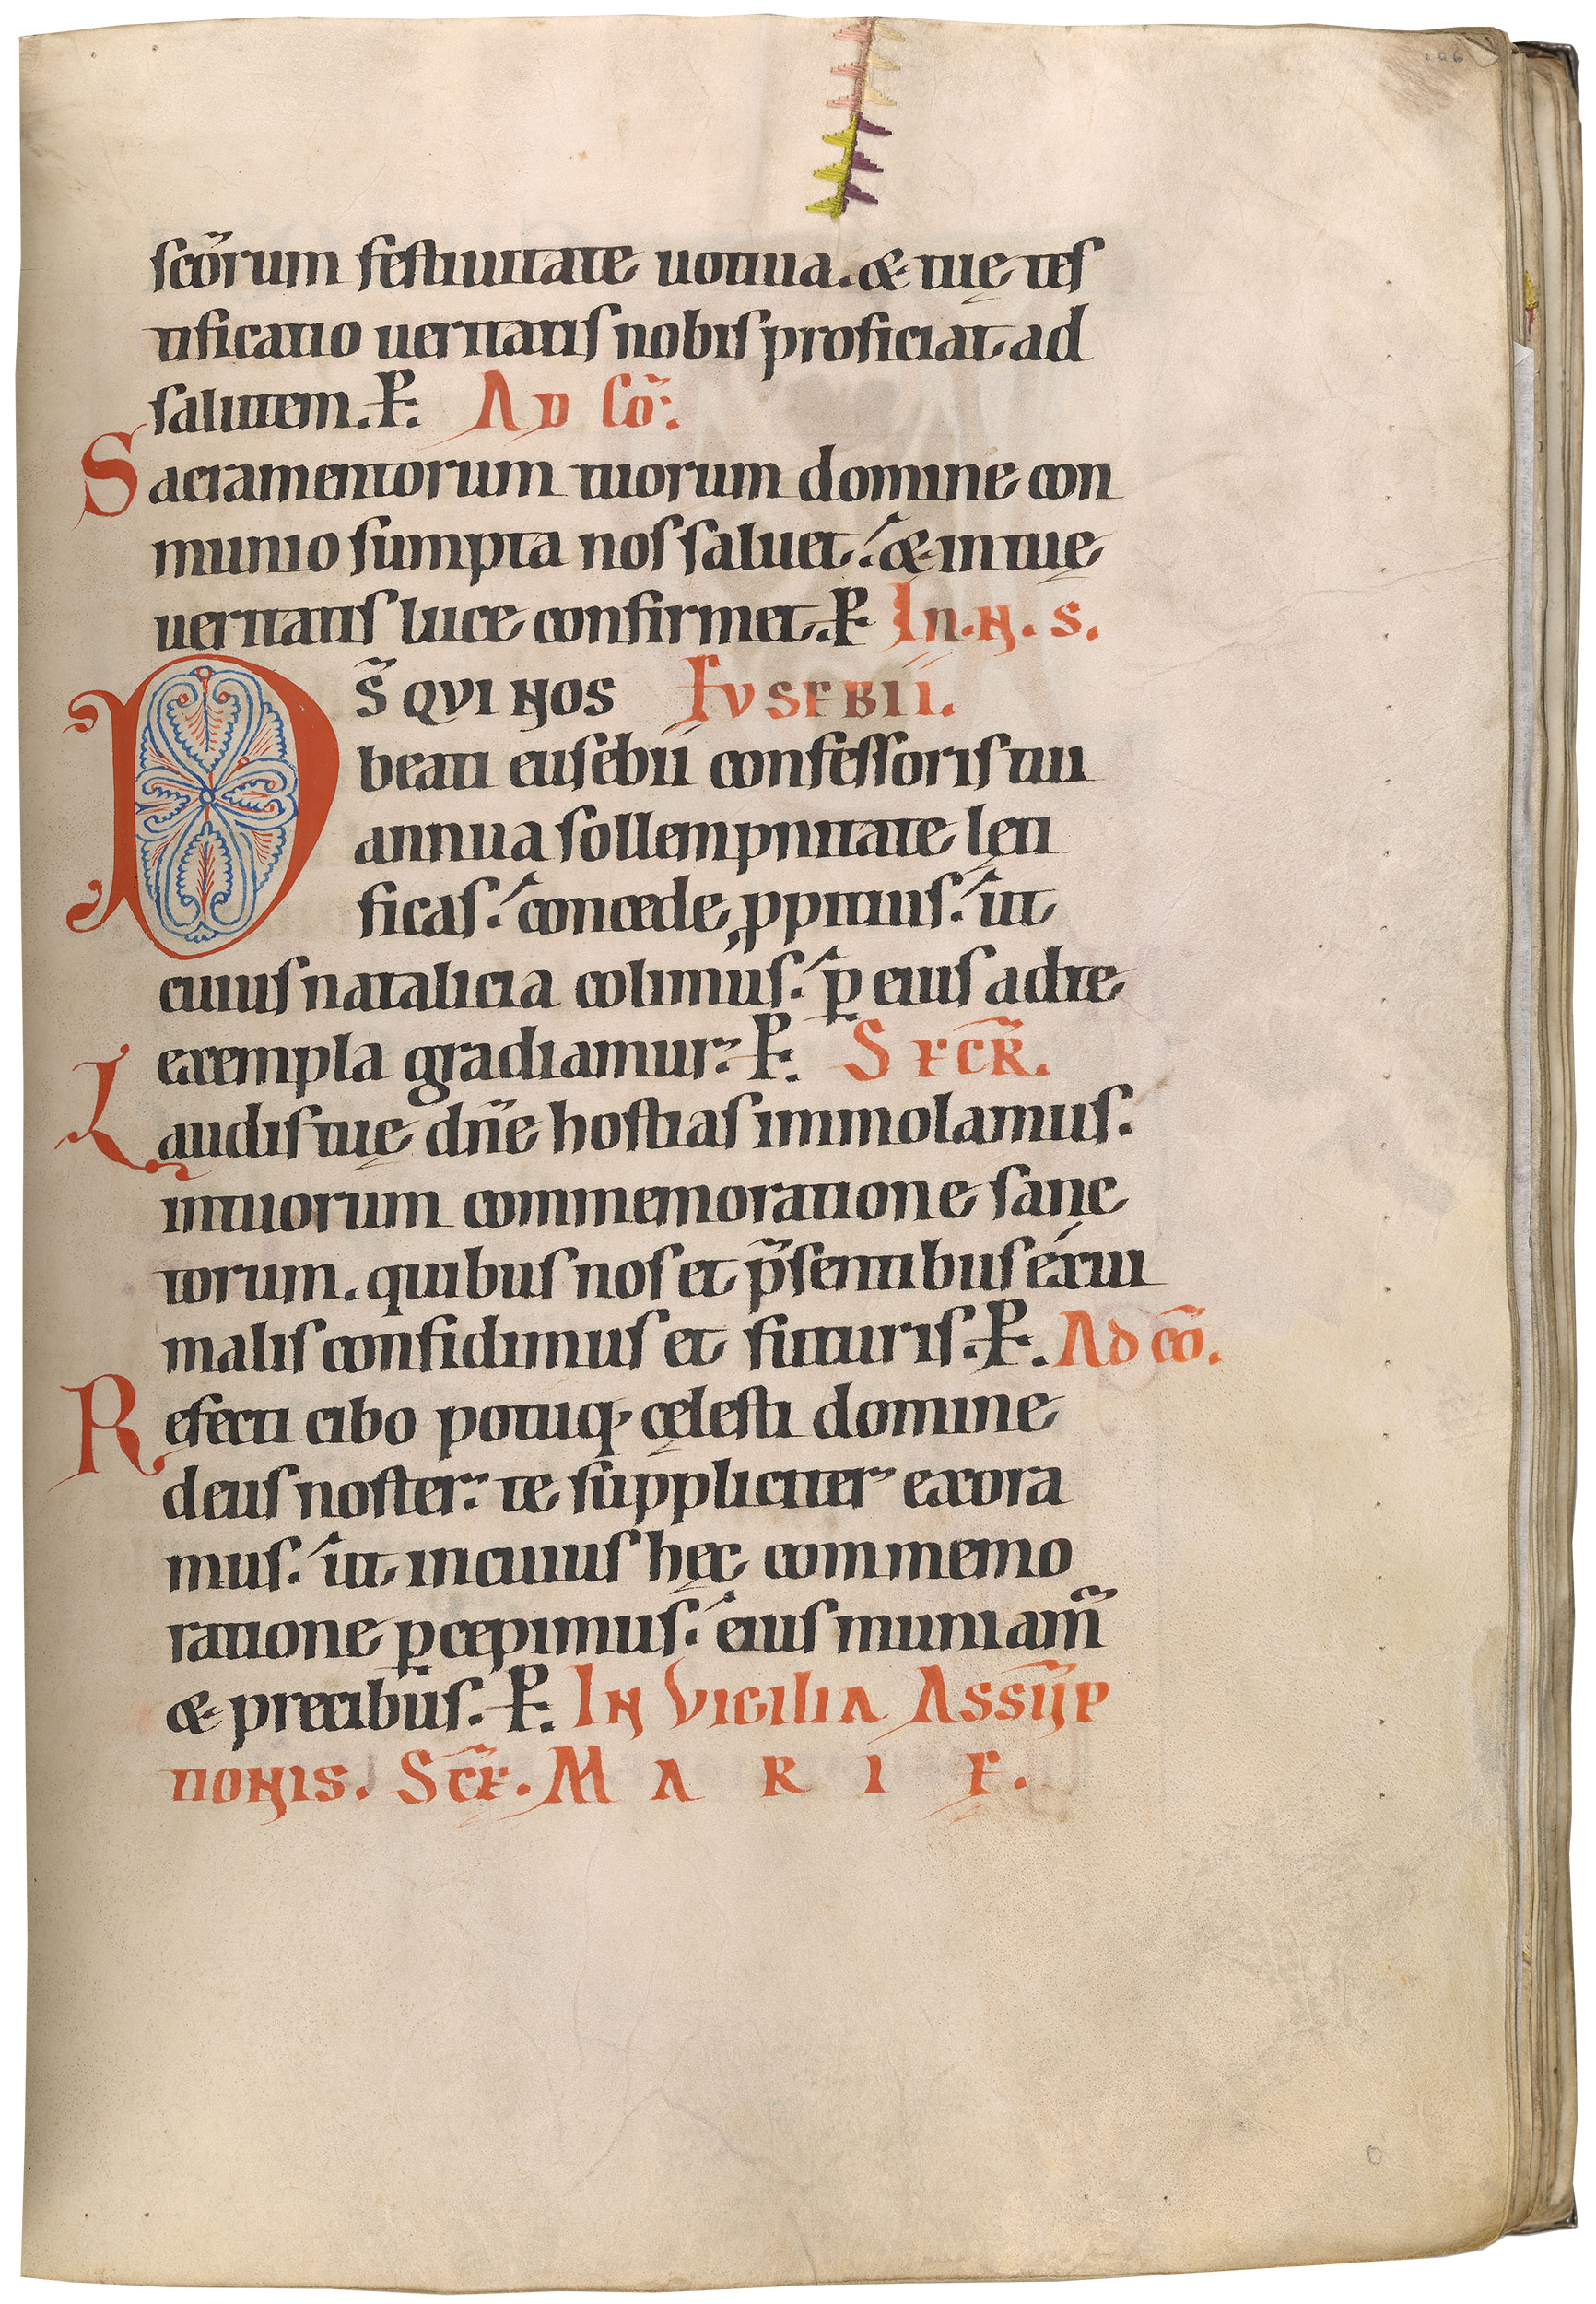 sco̅rum festiuitate uotiua. & tuę tes
tificatio ueritatis nobis proficiat ad
salutem. P. AD Co̅.
Sacramentorum tuorum domine con
munio sumpta nos saluet. & in tuę
ueritatis luce confirmet. P. In. N. S.
Ds̅ QVI NOS EVSEBII.
beati eusebii confessoris tui
annua sollempnitate lęti
ficas. concede ꝓpitius. ut
cuius natalicia colimus. ꝑ eius ad te
exempla gradiamur. P. SECR̅.
Laudis tuę dn̅e hostias immolamus.
in tuorum commemoratione sanc
torum. quibus nos et p̅sentibus exui
malis confidimus et futuris. P. AD co̅.
Refecti cibo potuq; cęlesti domine
deus noster. te suppliciter exora
mus. ut in cuius hęc commemo
ratione ꝑcepimus. eius muniam̅
& precibus. P. IN VIGILIA ASSŪP
TIONIS. SC̅E. MARIE.
106